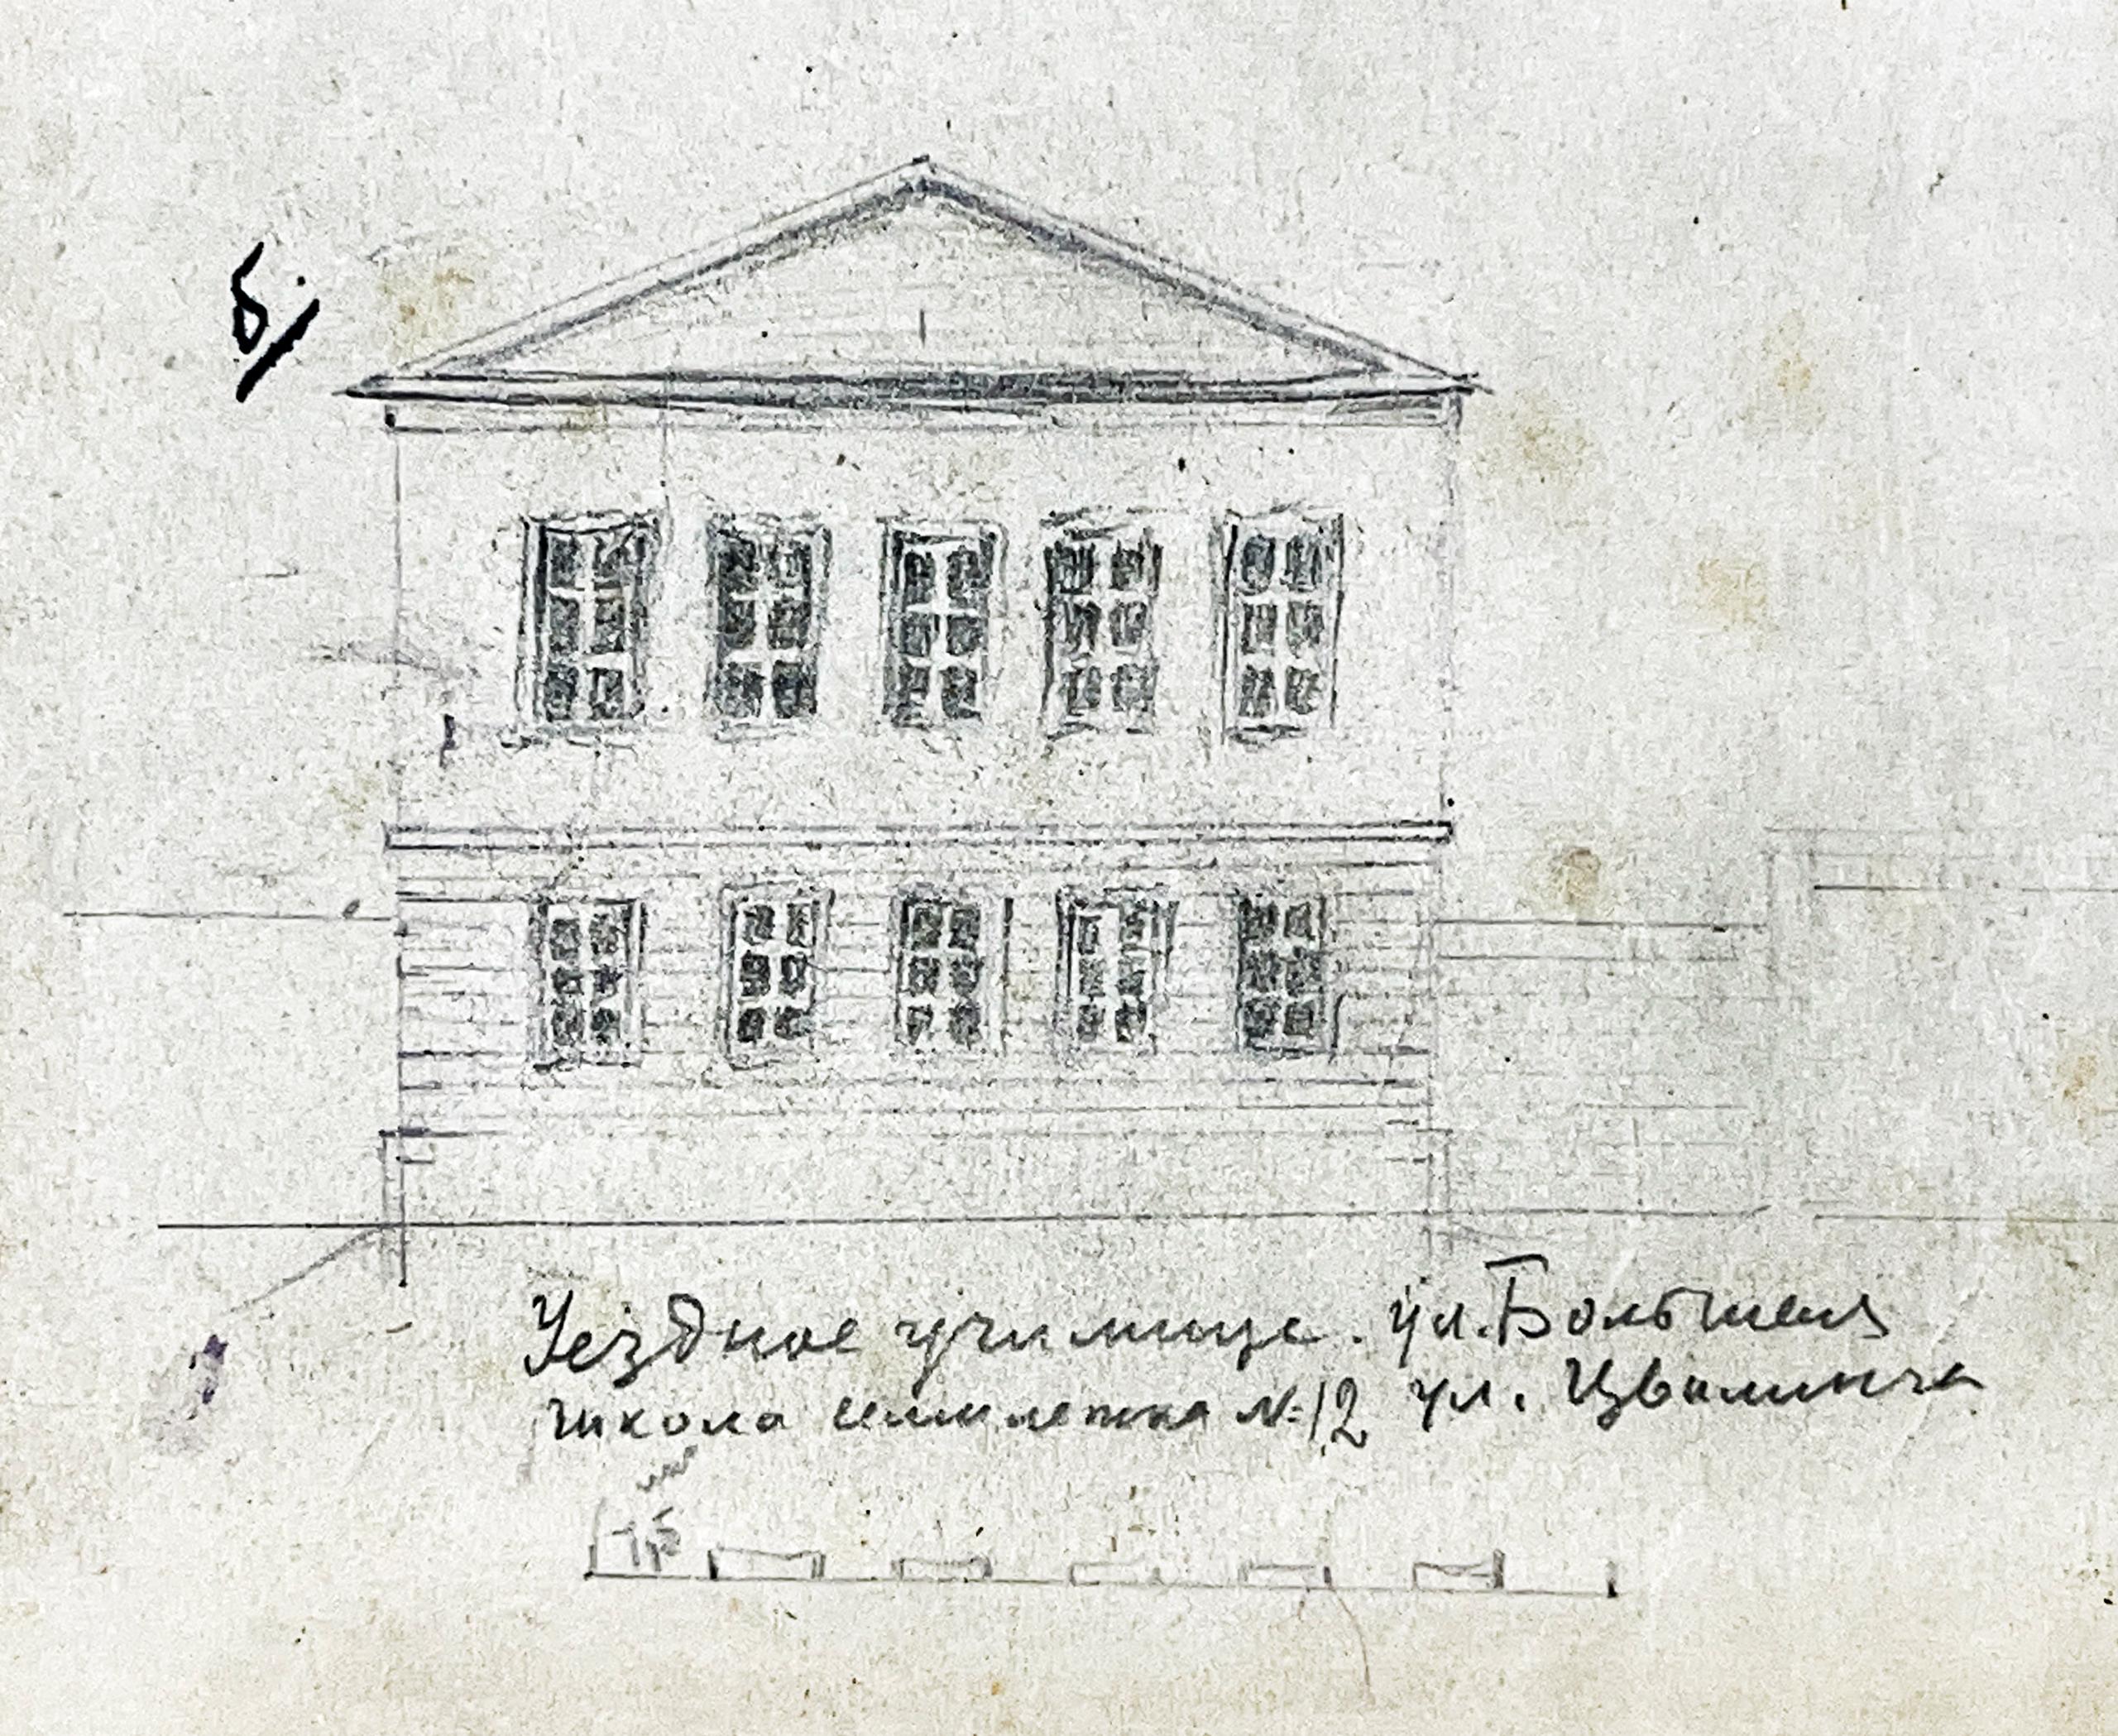 б/
Уездное училище. ул. Большая
школа семилетка №12 ул. Цвилинга